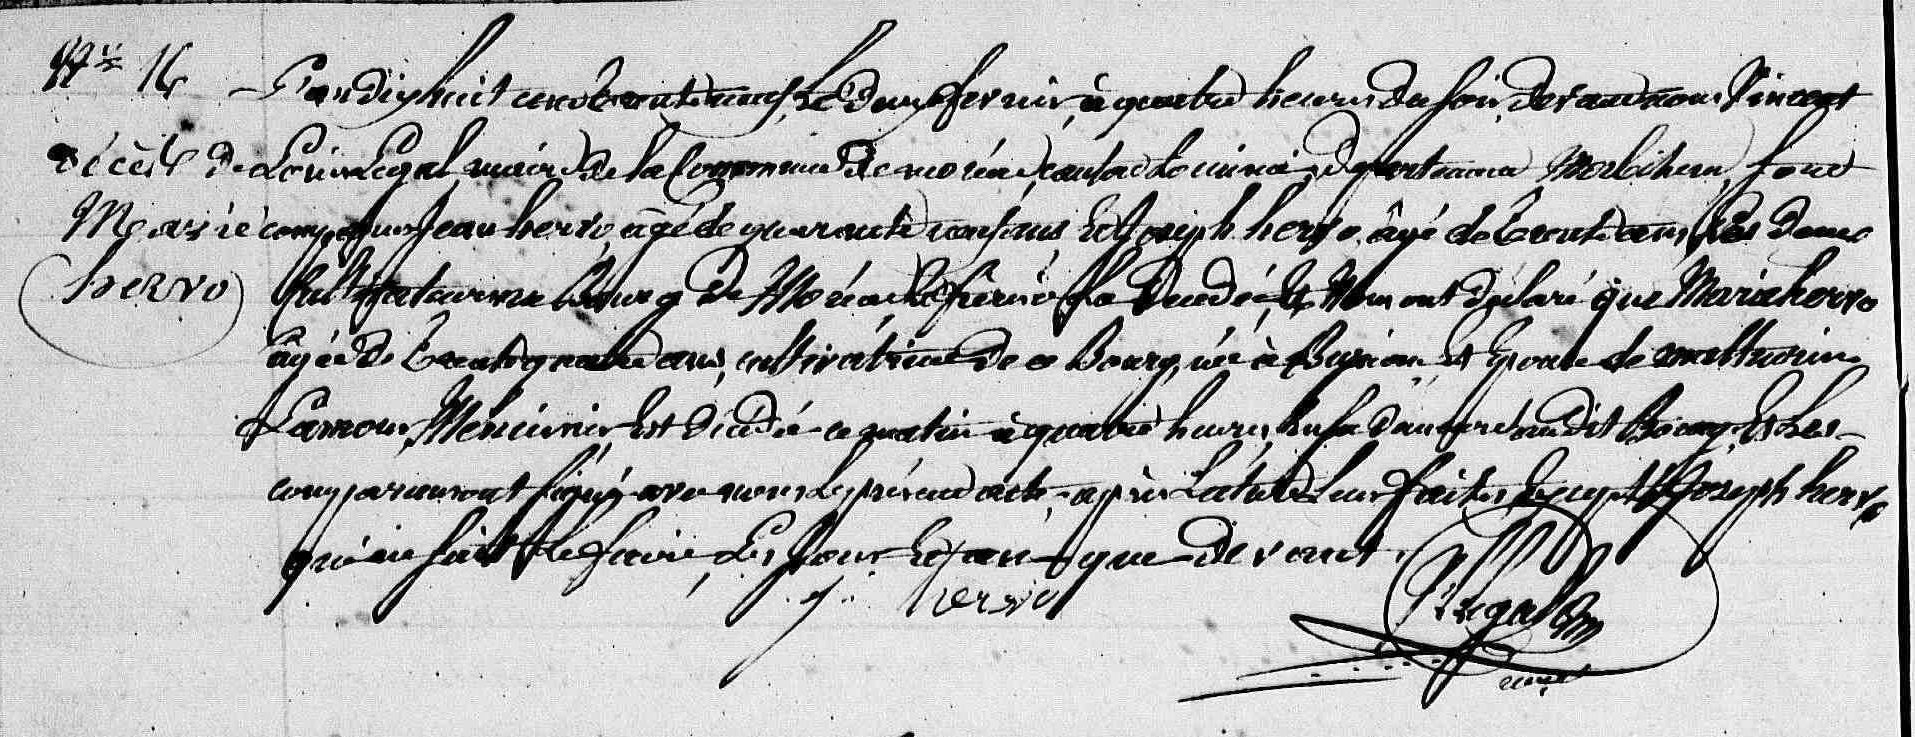 N.º 16
Décès de
Marie
hervo
L'an dix huit cent trente neuf, le douze février, à quatre heures du soir, devant nous Vincent
Louis Legal, maire de la Commune de moréac, canton Locminé, département Morbihan, sont
comparus Jean hervo, âgé de quarante ans Et Joseph hervo, âgé de trente ans, tous Deux
Cultivateurs au Bourg De Moréac, frères De la Décédée, Les Nous ont déclaré que Marie hervo
âgée De trente quatre ans, cultivatrice De ce Bourg, née à Buzian Et Epouse de mathurin
Lamour, Menuisier, Est décédée ce matin à quatre heures, En sa demeure au dit Bourg, Et Les
comparans ont signé avec nous Le présent acte, après Lecture Leur faite, Excepté Joseph hervo
qui ne sait Le faire, Les Jour Et an que Devant.
j. hervo
V. Legal